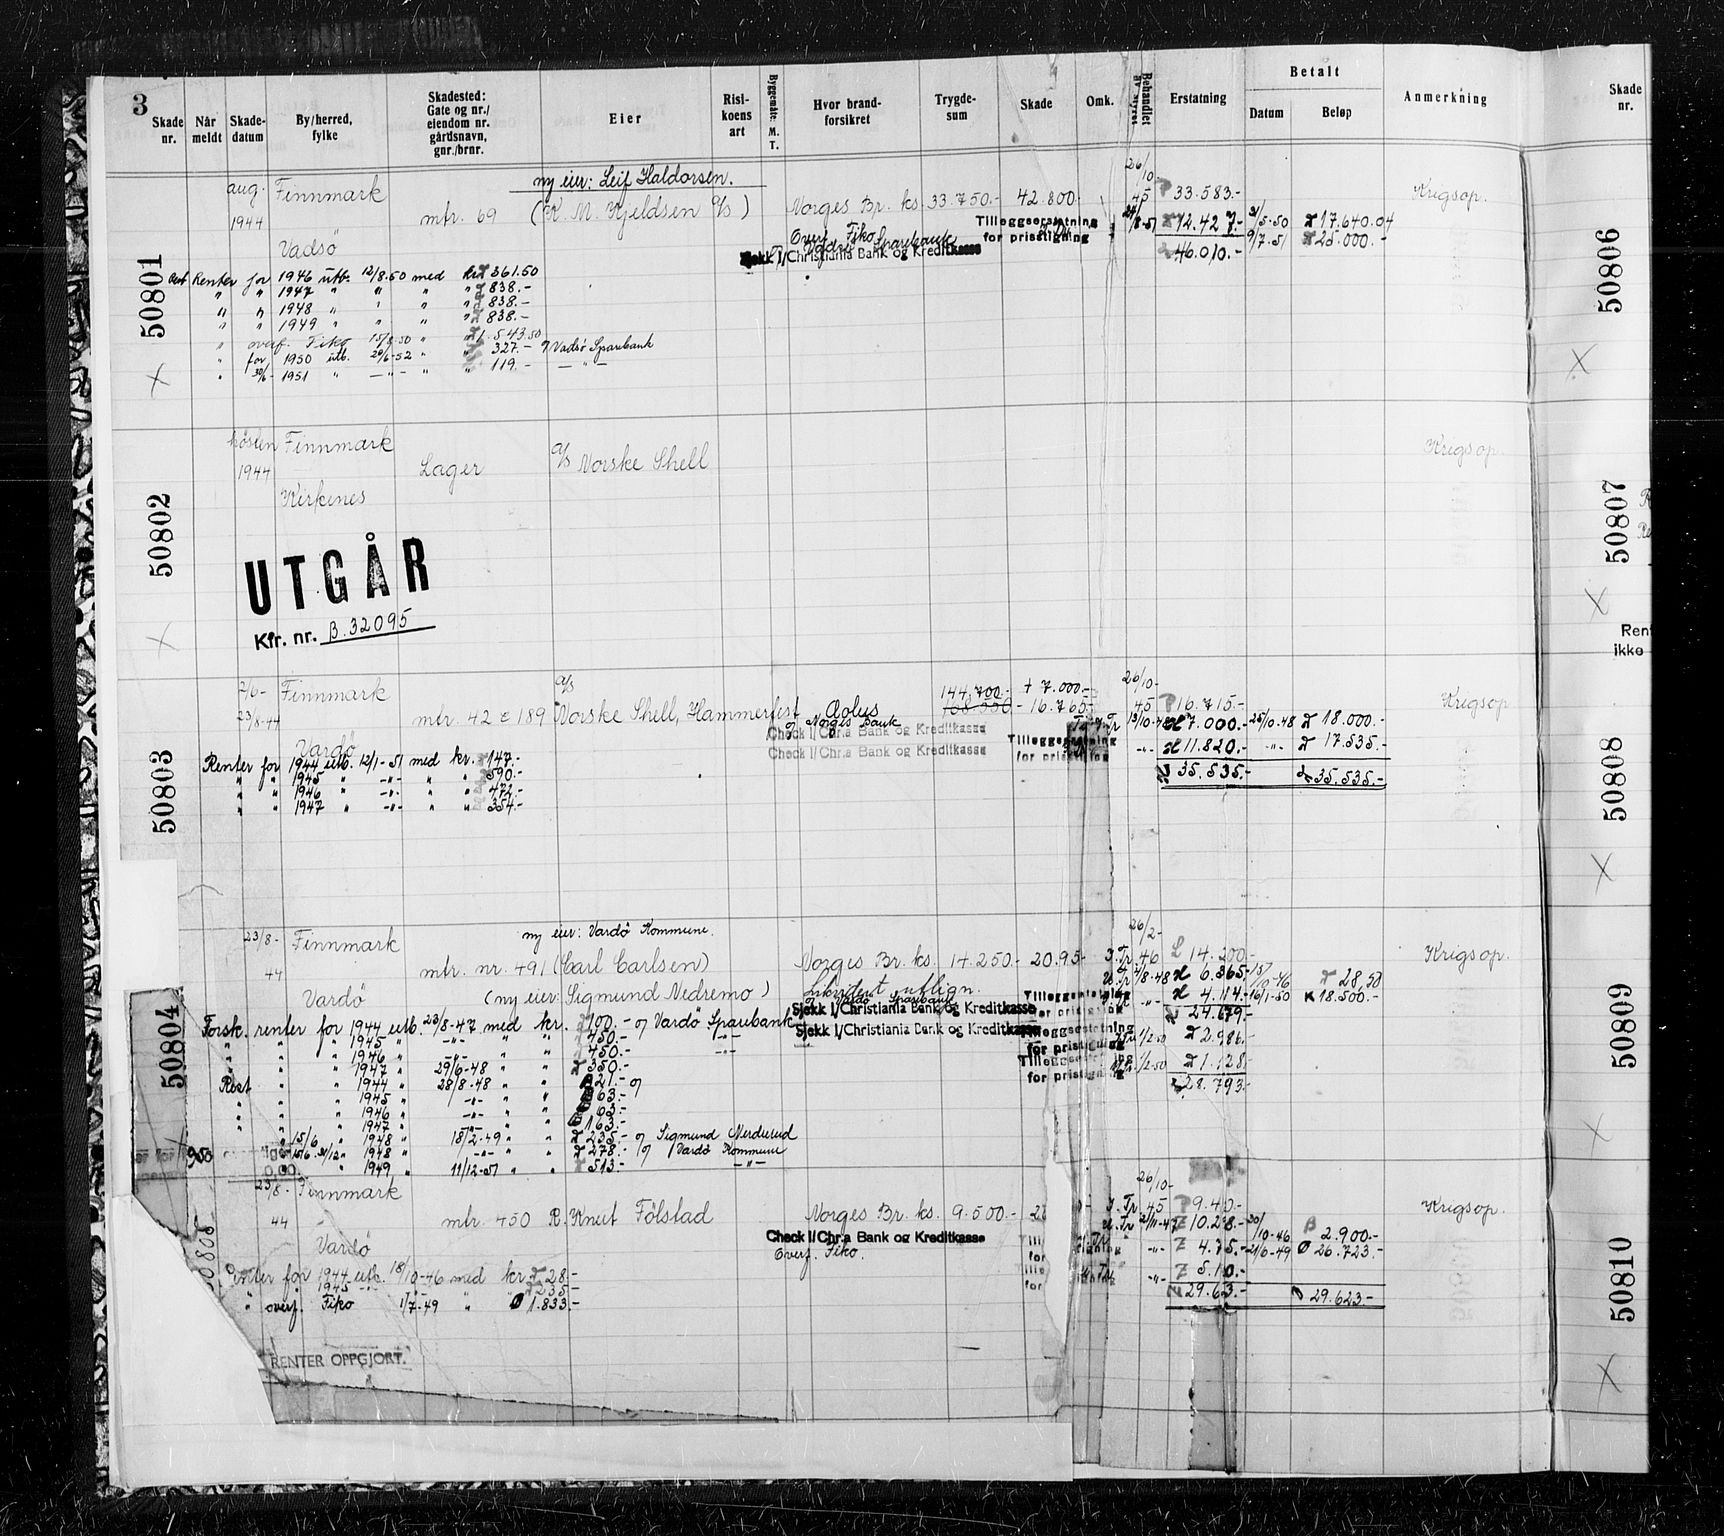 3
Skade nr. | Når meldt | Skade-datum | By/herred, fylke | Skadested: Gate og nr./ eiendom nr. gårdsnavn, gnr./brnr. | Eier | Risi-koens art | Byggemåte: M. T. | Hvor brand-forsikret | Trygde-sum | Skade | Omk. | Behandlet av styret | Erstatning | Betalt Datum | Beløp | Anmerkning | Skade nr.
50801
aug. 1944 Finnmark
Vadsö
mtr. 69
ny eier: Leif Haldorsen.
(K. M. Kjeldsen A/S)
Norges Br. ks. 33.750.- 42.800.- 26/10-45 33.583.- Krigsop.
Tilleggserstatning for prisstigning 12.427.- 31/5-50 17.640.04
46.010.- 9/7.51 25.000.-
Overf. Fiko
Vadsö Sparebank
Sjekk I/Christiania Bank og Kreditkasse
Renter for 1946 utb. 12/8.50 med kr. 361.50
" " 1947 " " " " 838.-
" " 1948 " " " " 838.-
" " 1949 " " " " 838.-
" overf. Fiko 15/8-50 " 1.543.50
" for 1950 utb. 20/6-52 " " 327.- Vadsö Sparebank
" 30/6- 1951 " -"- " " 119.- -"-
50802
høsten 1944 Finnmark
Kirkenes
Lager
A/S Norske Shell
Krigsop.
UTGÅR
Kfr. nr. B.32095
50803
23/8-44 Finnmark
Vardö
mtr. 42 & 189
A/S Norske Shell, Hammerfest
Æolus
144.700.- + 7.000.- 26/10-
16.765.- 45 16.715.- Krigsop
Norges Bank
Check I/Chr.a Bank og Kreditkasse
Check I/Chr.a Bank og Kreditkasse
Tilleggserstatning for prisstigning
13/10-48 7.000.- 25/10.48 18.000.-
-"- 11.820.- -"- 17.535.-
35.535.- 35.535.-
Renter for 1944 utb. 12/1-51 med kr. 147.-
" " 1945 " -"- " " 590.-
" " 1946 " -"- " " 472.-
" " 1947 " -"- " " 354.-
50804
23/8-44 Finnmark
Vardö
mtr. nr. 491
ny eier: Vardö Kommune.
(Carl Carlsen)
(ny eier: Sigmund Nedremo)
Norges Br. ks. 14.250.- 20.95- 26/2-46 14.200.- Krigsop.
Likvidert utlign.
Vardö Sparebank
Sjekk I/Christiania Bank og Kreditkasse
Sjekk I/Christiania Bank og Kreditkasse
Tilleggserstatning for prisstigning
6.365.-
4.114.- 16/1-50 18.500.-
24.679.-
Tilleggserstatning for prisstigning 1/2-50 2.986.-
Tilleggserstatning for prisstigning 1/2-50 1.128.-
28.793.-
Forsk. renter for 1944 utb. 23/8-47 med kr. 100.- Vardö Sparebank
" " 1945 " -"- " " 450.- -"-
" " 1946 " -"- " " 450.- -"-
" " 1947 " 29/6-48 " " 350.-
Rest " 1944 " 28/8-48 " " 21.-
" " 1945 " -"- " " 63.-
" " 1946 " -"- " " 63.-
" " 1947 " -"- " " 163.-
15/6 " 1948 " 18/2-49 " " 235.- Sigmund
15/6 31/12 " 1948 " -"- " " 278.- Vardö Kommune
" 1949 " 11/12-51 " " 513.- -"-
50805
23/8-44 Finnmark
Vardö
mtr. 450
R. Knut Fölstad
Norges Br. ks. 9.500.- 26/10-45 Krigsop.
Check I/Chr.a Bank og Kreditkasse
Overf. Fiko.
2/11-47 30/10-46 2.900.-
-"- 21/6-49 26.723.-
29.623.-
Renter for 1944 utb. 18/10-46 med kr. 28.-
" " 1945 -"- 235.-
" overf. Fiko 1/7-49 " 1.833.-
RENTER OPPGJORT.
50806
50807
50808
50809
50810
Rent
ikke